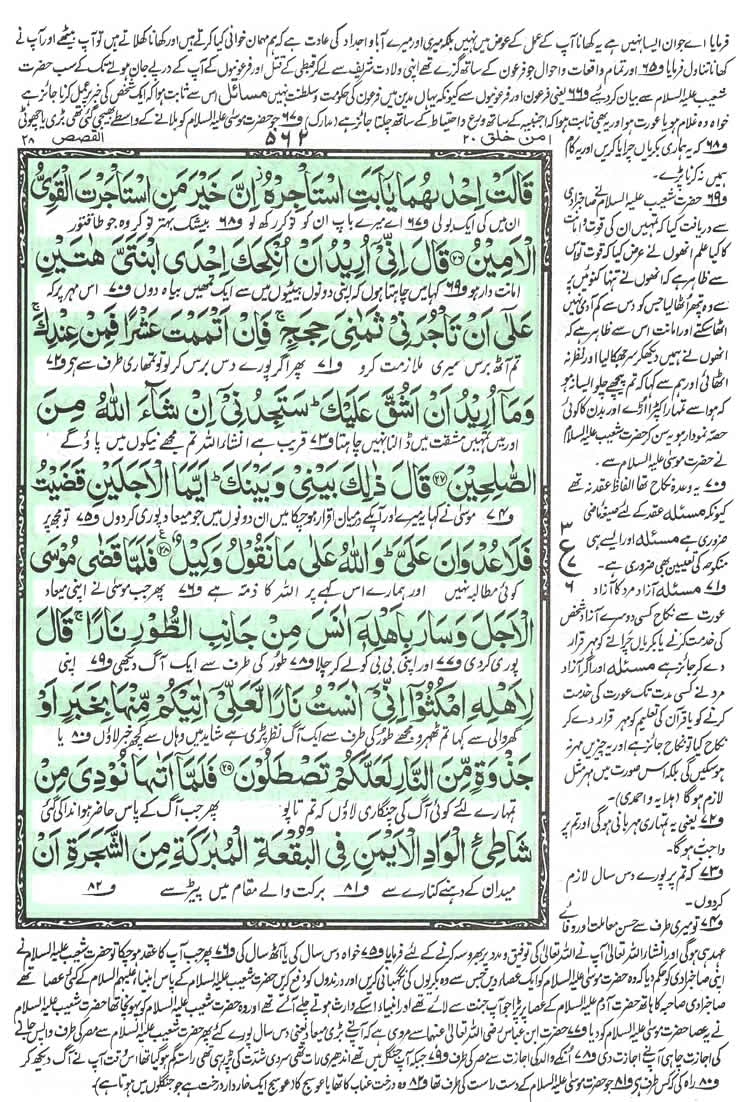 فرمایا اے جوان ایسا نہیں ہے یہ کھانا آپ کے عمل کے عوض میں نہیں بلکہ میری اور میرے آباو اجداد کی عادت ہے کہ ہم مہمان خوانی کیا کرتے ہیں اور کھانا کھلاتے ہیں تو آپ بیٹھے اور آپ نے
کھانا تناول فرمایا و۶۵ اور تمام واقعات و احوال جو فرعون کے ساتھ گزرے تھے اپنی ولادت شریف سے لے کر قبطی کے قتل اور فرعونیوں کے آپ کے درپے جان ہونے تک کے سب حضرت
شعیب علیہ السلام سے بیان کر دیے و۶۶ یعنی فرعون اور فرعونیوں سے کیونکہ یہاں مدین میں فرعون کی حکومت و سلطنت نہیں مسائل اس سے ثابت ہوا کہ ایک شخص کی خبر پر عمل کرنا جائز ہے
خواہ وہ غلام ہو یا عورت ہو اور یہ بھی ثابت ہوا کہ اجنبیہ کے ساتھ ورع و احتیاط کے ساتھ چلنا جائز ہے (مدارک) و۶۷ جو حضرت موسیٰ علیہ السلام کو بلانے کے واسطے بھیجی گئی تھی بڑی یا چھوٹی
القصص ۲۸
۵۶۲
امن خلق ۲۰
قَالَتْ اِحْدٰىهُمَا يٰۤاَبَتِ اسْتَاْجِرْهُ ۫ اِنَّ خَيْرَ مَنِ اسْتَاْجَرْتَ الْقَوِيُّ
ان میں کی ایک بولی و۶۷ اے میرے باپ ان کو نوکر رکھ لو و۶۸ بیشک بہتر نوکر وہ جو طاقتور
الْاَمِيْنُ ﴿۲۶﴾ قَالَ اِنِّيْۤ اُرِيْدُ اَنْ اُنْكِحَكَ اِحْدَى ابْنَتَيَّ هٰتَيْنِ
امانت دار ہو و۶۹ کہا میں چاہتا ہوں کہ اپنی دونوں بیٹیوں میں سے ایک تمھیں بیاہ دوں و۷۰ اس مہر پر کہ
عَلٰۤى اَنْ تَاْجُرَنِيْ ثَمٰنِيَ حِجَجٍ ۚ فَاِنْ اَتْمَمْتَ عَشْرًا فَمِنْ عِنْدِكَ ۚ
تم آٹھ برس میری ملازمت کرو و۷۱ پھر اگر پورے دس برس کر لو تو تمھاری طرف سے ہی و۷۲
وَمَاۤ اُرِيْدُ اَنْ اَشُقَّ عَلَيْكَ ؕ سَتَجِدُنِيْۤ اِنْ شَآءَ اللّٰهُ مِنَ
اور میں تمہیں مشقت میں ڈالنا نہیں چاہتا و۷۳ قریب ہے انشاء اللہ تم مجھے نیکوں میں پاؤ گے
الصّٰلِحِيْنَ ﴿۲۷﴾ قَالَ ذٰلِكَ بَيْنِيْ وَبَيْنَكَ ؕ اَيَّمَا الْاَجَلَيْنِ قَضَيْتُ
و۷۴ موسیٰ نے کہا یہ میرے اور آپکے درمیان اقرار ہو چکا میں ان دونوں میں جو میعاد پوری کر دوں و۷۵ تو مجھ پر
فَلَا عُدْوَانَ عَلَيَّ ؕ وَاللّٰهُ عَلٰى مَا نَقُوْلُ وَكِيْلٌ ﴿۲۸﴾ فَلَمَّا قَضٰى مُوْسَى
کوئی مطالبہ نہیں اور ہمارے اس کہے پر اللہ کا ذمہ ہے و۷۶ پھر جب موسیٰ نے اپنی میعاد
الْاَجَلَ وَسَارَ بِاَهْلِهٖۤ اٰنَسَ مِنْ جَانِبِ الطُّوْرِ نَارًا ۚ قَالَ
پوری کر دی و۷۷ اور اپنی بی بی کو لے کر چلا و۷۸ طور کی طرف سے ایک آگ دیکھی و۷۹ اپنی
لِاَهْلِهِ امْكُثُوْۤا اِنِّيْۤ اٰنَسْتُ نَارًا لَّعَلِّيْۤ اٰتِيْكُمْ مِّنْهَا بِخَبَرٍ اَوْ
گھر والی سے کہا تم ٹھہرو مجھے طور کی طرف سے ایک آگ نظر پڑی ہے شاید میں وہاں سے کچھ خبر لاؤں و۸۰ یا
جَذْوَةٍ مِّنَ النَّارِ لَعَلَّكُمْ تَصْطَلُوْنَ ﴿۲۹﴾ فَلَمَّاۤ اَتٰىهَا نُوْدِيَ مِنْ
تمہارے لئے کوئی آگ کی چنگاری لاؤں کہ تم تاپو پھر جب آگ کے پاس حاضر ہوا ندا کی گئی
شَاطِئِ الْوَادِ الْاَيْمَنِ فِي الْبُقْعَةِ الْمُبٰرَكَةِ مِنَ الشَّجَرَةِ اَنْ
میدان کے دہنے کنارے سے و۸۱ برکت والے مقام میں پیڑ سے و۸۲
و۶۸ کہ یہ ہماری بکریاں چرایا کریں اور یہ کام
ہمیں نہ کرنا پڑے۔
و۶۹ حضرت شعیب علیہ السلام نے صاحبزادی
سے دریافت کیا کہ تمہیں ان کی قوت و امانت
کا کیا علم انھوں نے عرض کیا کہ قوت تو اس
سے ظاہر ہے کہ انھوں نے تنہا کنوئیں پر
سے وہ پتھر اٹھا لیا جس کو دس سے کم آدمی نہیں
اٹھا سکتے اور امانت اس سے ظاہر ہے کہ
انھوں نے ہمیں دیکھکر سر جھکا لیا اور نظر نہ
اٹھائی اور ہم سے کہا کہ تم پیچھے چلو ایسا نہ ہو
کہ ہوا سے تمہارا کپڑا اڑے اور بدن کا کوئی
حصہ نمودار ہو یہ سن کر حضرت شعیب علیہ السلام
نے حضرت موسیٰ علیہ السلام سے۔
و۷۰ یہ وعدۂ نکاح تھا الفاظ عقد نہ تھے
کیونکہ مسئلہ عقد کے لئے صیغۂ ماضی
ضروری ہے مسئلہ اور ایسے ہی
منکوحہ کی تعیین بھی ضروری ہے۔
و۷۱ مسئلہ آزاد مرد کا آزاد
عورت سے نکاح کسی دوسرے آزاد شخص
کی خدمت کرنے یا بکریاں چرانے کو مہر قرار
دے کر جائز ہے مسئلہ اور اگر آزاد
مرد نے کسی مدت تک عورت کی خدمت
کرنے کو یا قرآن کی تعلیم کو مہر قرار دے کر
نکاح کیا تو نکاح جائز ہے اور یہ چیزیں مہر نہ
ہو سکیں گی بلکہ اس صورت میں مہر مثل
لازم ہو گا (ہدایہ و احمدی)۔
و۷۲ یعنی یہ تمہاری مہربانی ہو گی اور تم پر
واجب نہ ہو گا۔
و۷۳ کہ تم پر پورے دس سال لازم
کر دوں۔
و۷۴ تو میری طرف سے حسن معاملت اور وفائے
ع
۳
۶
عہد ہی ہو گی اور انشاء اللہ تعالیٰ آپ نے اللہ تعالیٰ کی توفیق و مدد پر بھروسہ کرنے کے لئے فرمایا و۷۵ خواہ دس سال کی یا آٹھ سال کی و۷۶ پھر جب آپ کا عقد ہو چکا تو حضرت شعیب علیہ السلام نے
اپنی صاحبزادی کو حکم دیا کہ وہ حضرت موسیٰ علیہ السلام کو ایک عصا دیں جس سے وہ بکریوں کی نگہبانی کریں اور درندوں کو دفع کریں حضرت شعیب علیہ السلام کے پاس انبیاء علیہم السلام کے کئی عصا تھے
صاحبزادی صاحبہ کا ہاتھ حضرت آدم علیہ السلام کے عصا پر پڑا جو آپ جنت سے لائے تھے اور انبیاء اسکے وارث ہوتے چلے آئے تھے اور وہ حضرت شعیب علیہ السلام کو پہونچا تھا حضرت شعیب علیہ السلام
نے یہ عصا حضرت موسیٰ علیہ السلام کو دیا و۷۷ حضرت ابن عباس رضی اللہ تعالیٰ عنہما سے مروی ہے کہ آپنے بڑی میعاد یعنی دس سال پورے کئے پھر حضرت شعیب علیہ السلام سے مصر کی طرف واپس جانے
کی اجازت چاہی آپنے اجازت دی و۷۸ انکے والد کی اجازت سے مصر کی طرف و۷۹ جبکہ آپ جنگل میں تھے اندھیری رات تھی سردی شدت کی پڑ رہی تھی راستہ گم ہو گیا تھا اس وقت آپ نے آگ دیکھ کر
و۸۰ راہ کی کہ کس طرف ہے و۸۱ جو حضرت موسیٰ علیہ السلام کے دست راست کی طرف تھا و۸۲ وہ درخت عناب کا تھا یا عوسج کا (عوسج ایک خاردار درخت ہے جو جنگلوں میں ہوتا ہے)